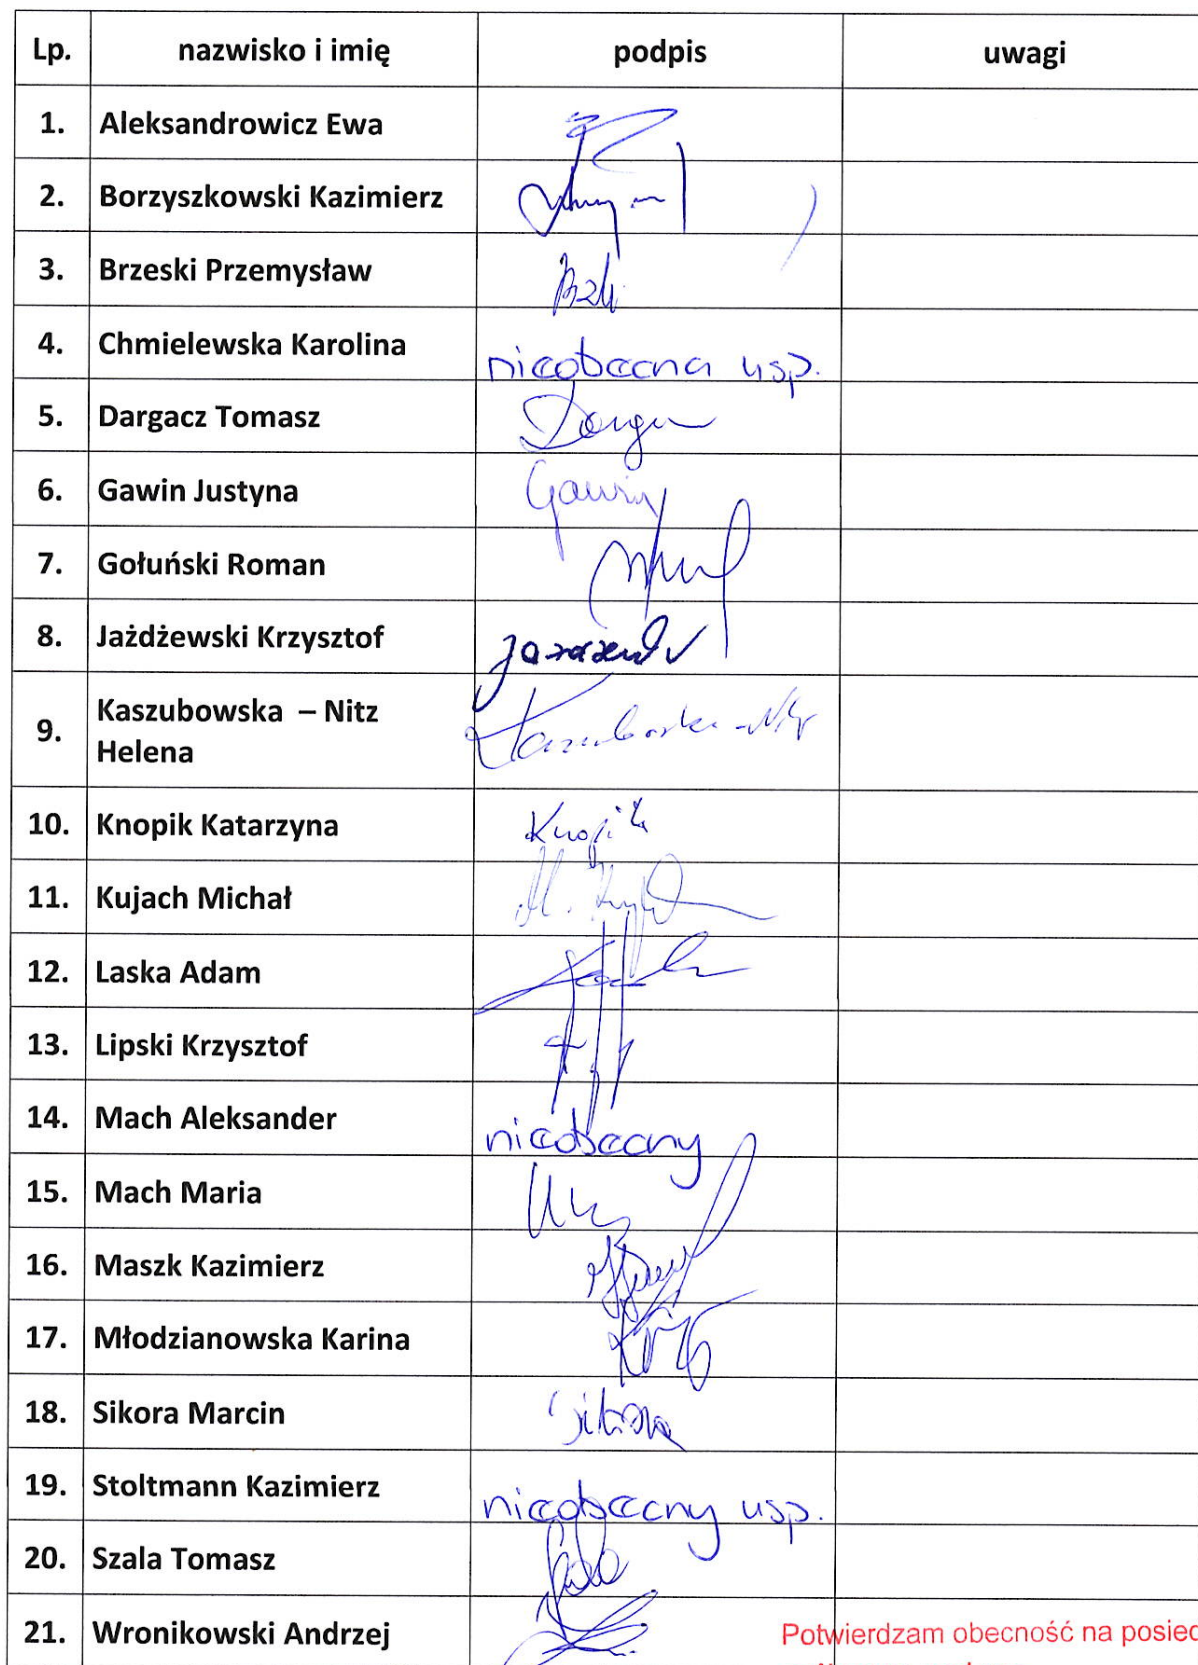 Lp. nazwisko i imię podpis uwagi
1. Aleksandrowicz Ewa
2. Borzyszkowski Kazimierz
3. Brzeski Przemysław
4. Chmielewska Karolina nieobecna usp.
5. Dargacz Tomasz
6. Gawin Justyna Gawin
7. Gołuński Roman
8. Jażdżewski Krzysztof
9. Kaszubowska – Nitz
Helena Kaszubowska-Nitz
10. Knopik Katarzyna Knopik
11. Kujach Michał
12. Laska Adam
13. Lipski Krzysztof
14. Mach Aleksander nieobecny
15. Mach Maria
16. Maszk Kazimierz
17. Młodzianowska Karina
18. Sikora Marcin Sikora
19. Stoltmann Kazimierz nieobecny usp.
20. Szala Tomasz
21. Wronikowski Andrzej
Potwierdzam obecność na posied